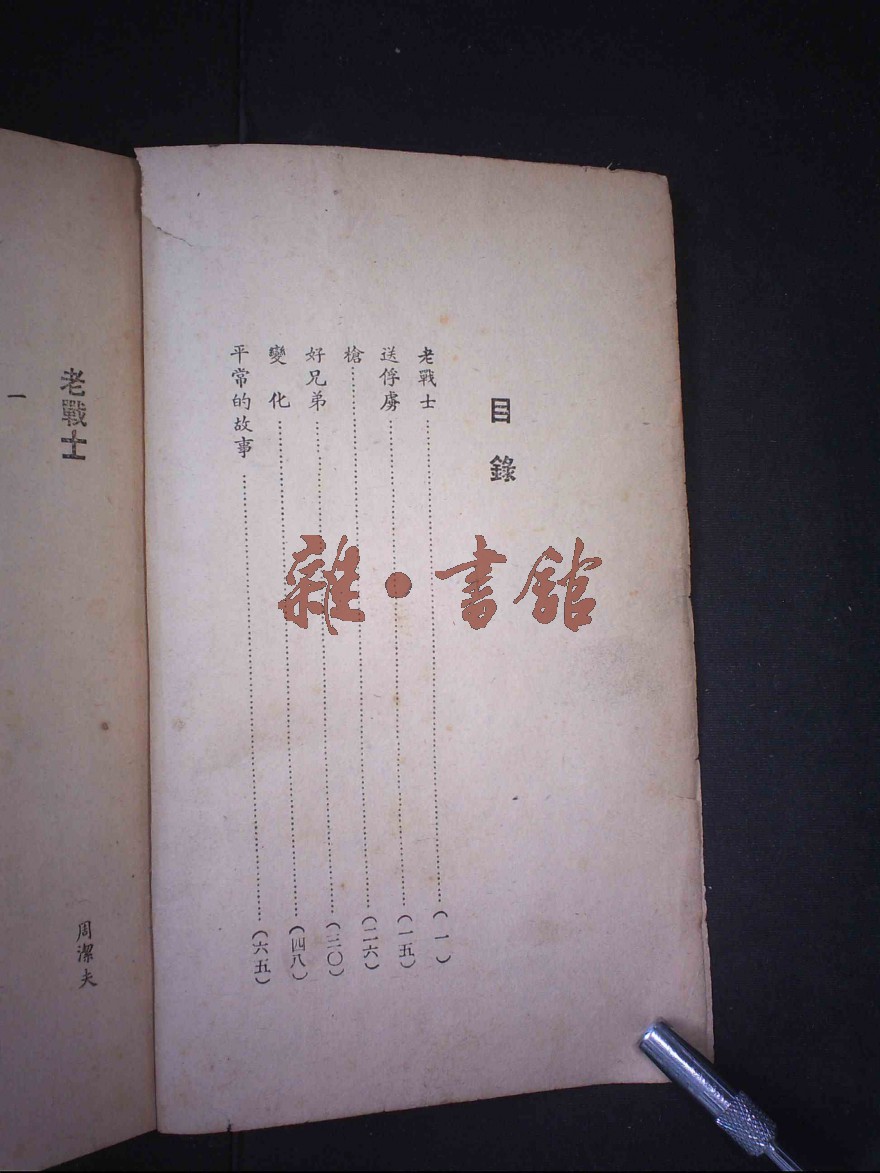 目錄
老戰士…………(一)
送俘虜…………(一五)
槍…………(二六)
好兄弟…………(三〇)
變化…………(四八)
平常的故事…………(六五)
老戰士
周潔夫
一
雜·書館